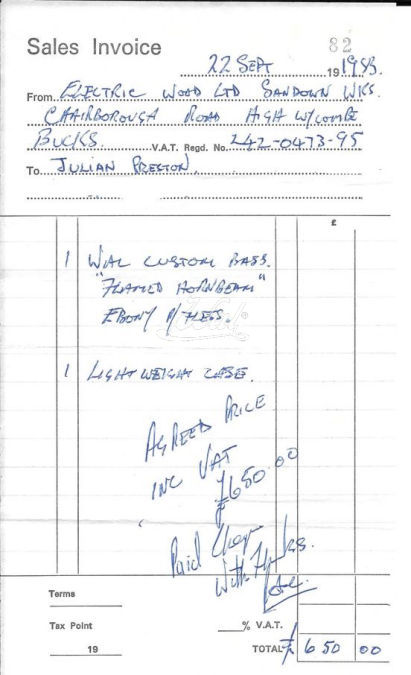 Sales Invoice 82
22 SEPT 19 1983.
From ELECTRIC WOOD LTD SANDOWN WKS.
CHAIRBOROUGH ROAD HIGH WYCOMBE
BUCKS. V.A.T. Regd. No. 242-0473-95
To JULIAN PRESTON
£
1 WAL CUSTOM BASS.
"FLAMED HORNBEAM"
EBONY F/LESS.
1 LIGHTWEIGHT CASE.
AGREED PRICE
INC VAT
£650.00
Paid Cheq
With Thanks.
Pete.
Terms
Tax Point % V.A.T.
19 TOTAL £ 650 00